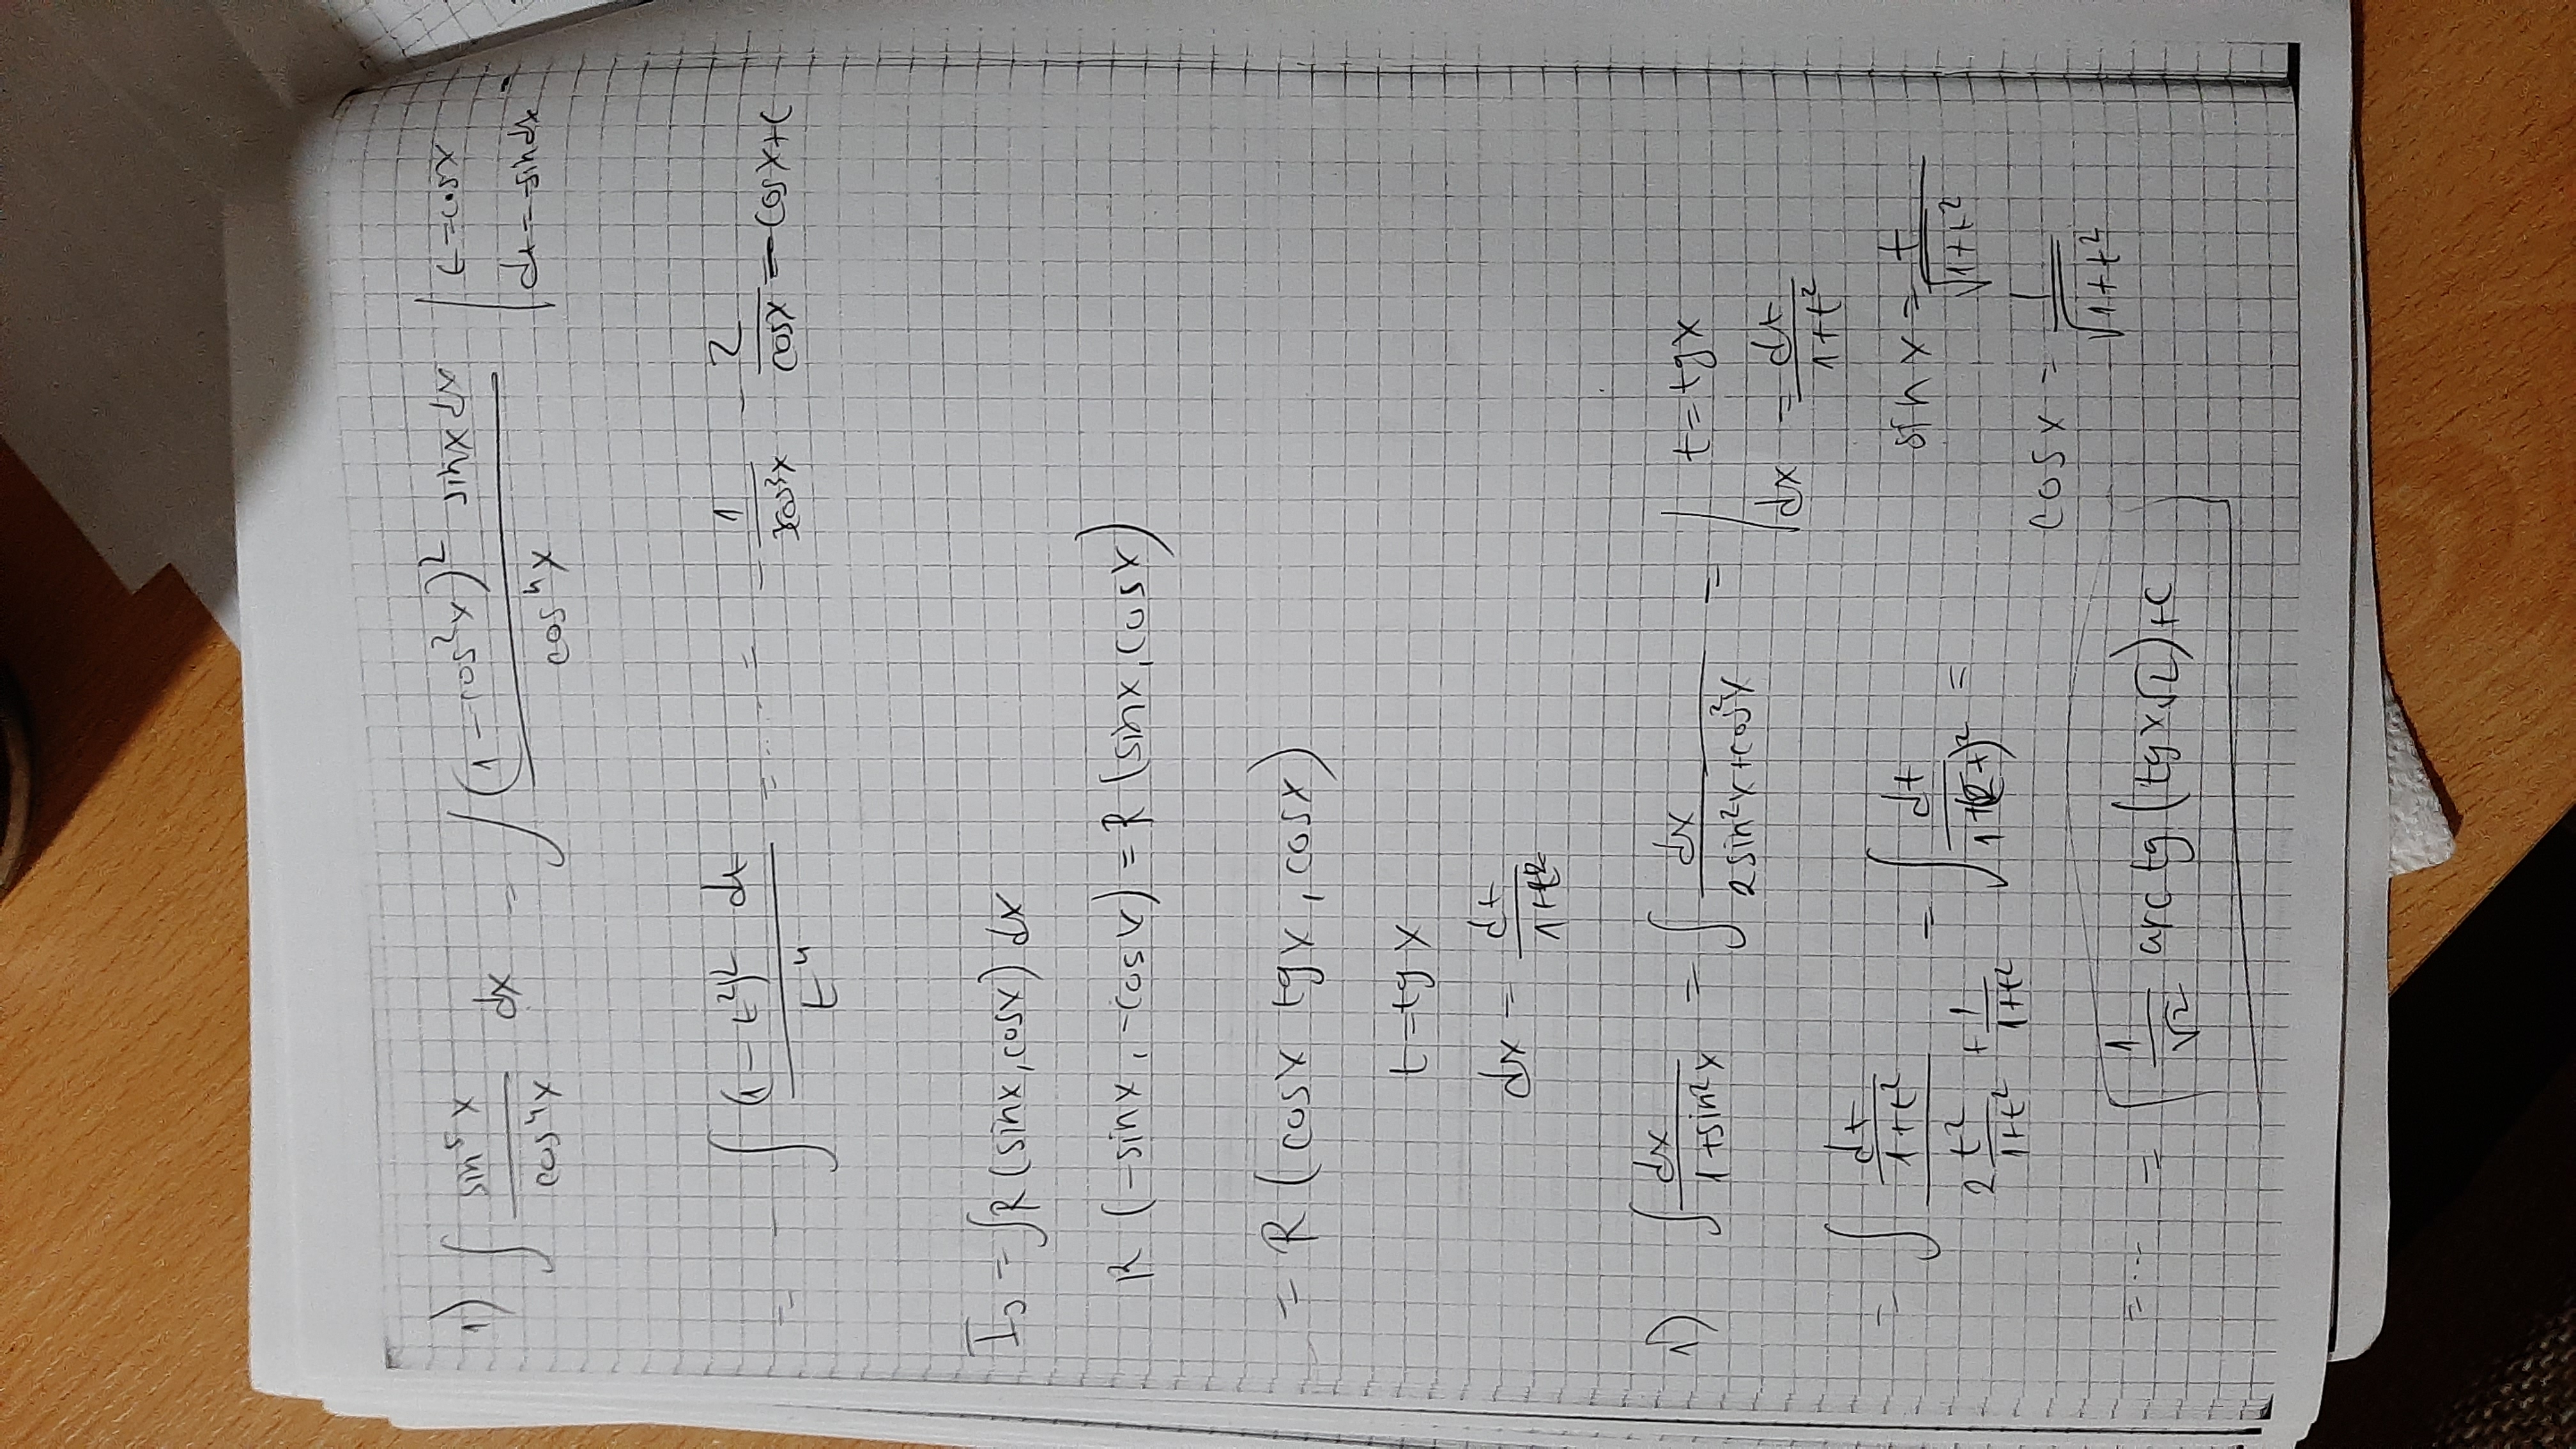 1) ∫ sin⁵x / cos⁴x dx = ∫ (1-cos²x)² sinx dx / cos⁴x | t=cosx
dt=-sindx
= - ∫ (1-t²)² dt / t⁴ = .... = - 1/3cos³x - 2/cosx - cosx+C
I₃ = ∫R(sinx, cosx) dx
R (-sinx, -cosx) = R (sinx, cosx)
= R (cosx tgx, cosx)
t=tgx
dx = dt / 1+t²
1) ∫ dx / 1+sin²x = ∫ dx / 2sin²x+cos²x = | t=tgx
dx = dt / 1+t²
= ∫ (dt / 1+t²) / (2 t²/1+t² + 1/1+t²) = ∫ dt / 1+(√2t)² =
sinx = t / √1+t²
cosx = 1 / √1+t²
= ... = 1/√2 arctg (tgx√2)+C